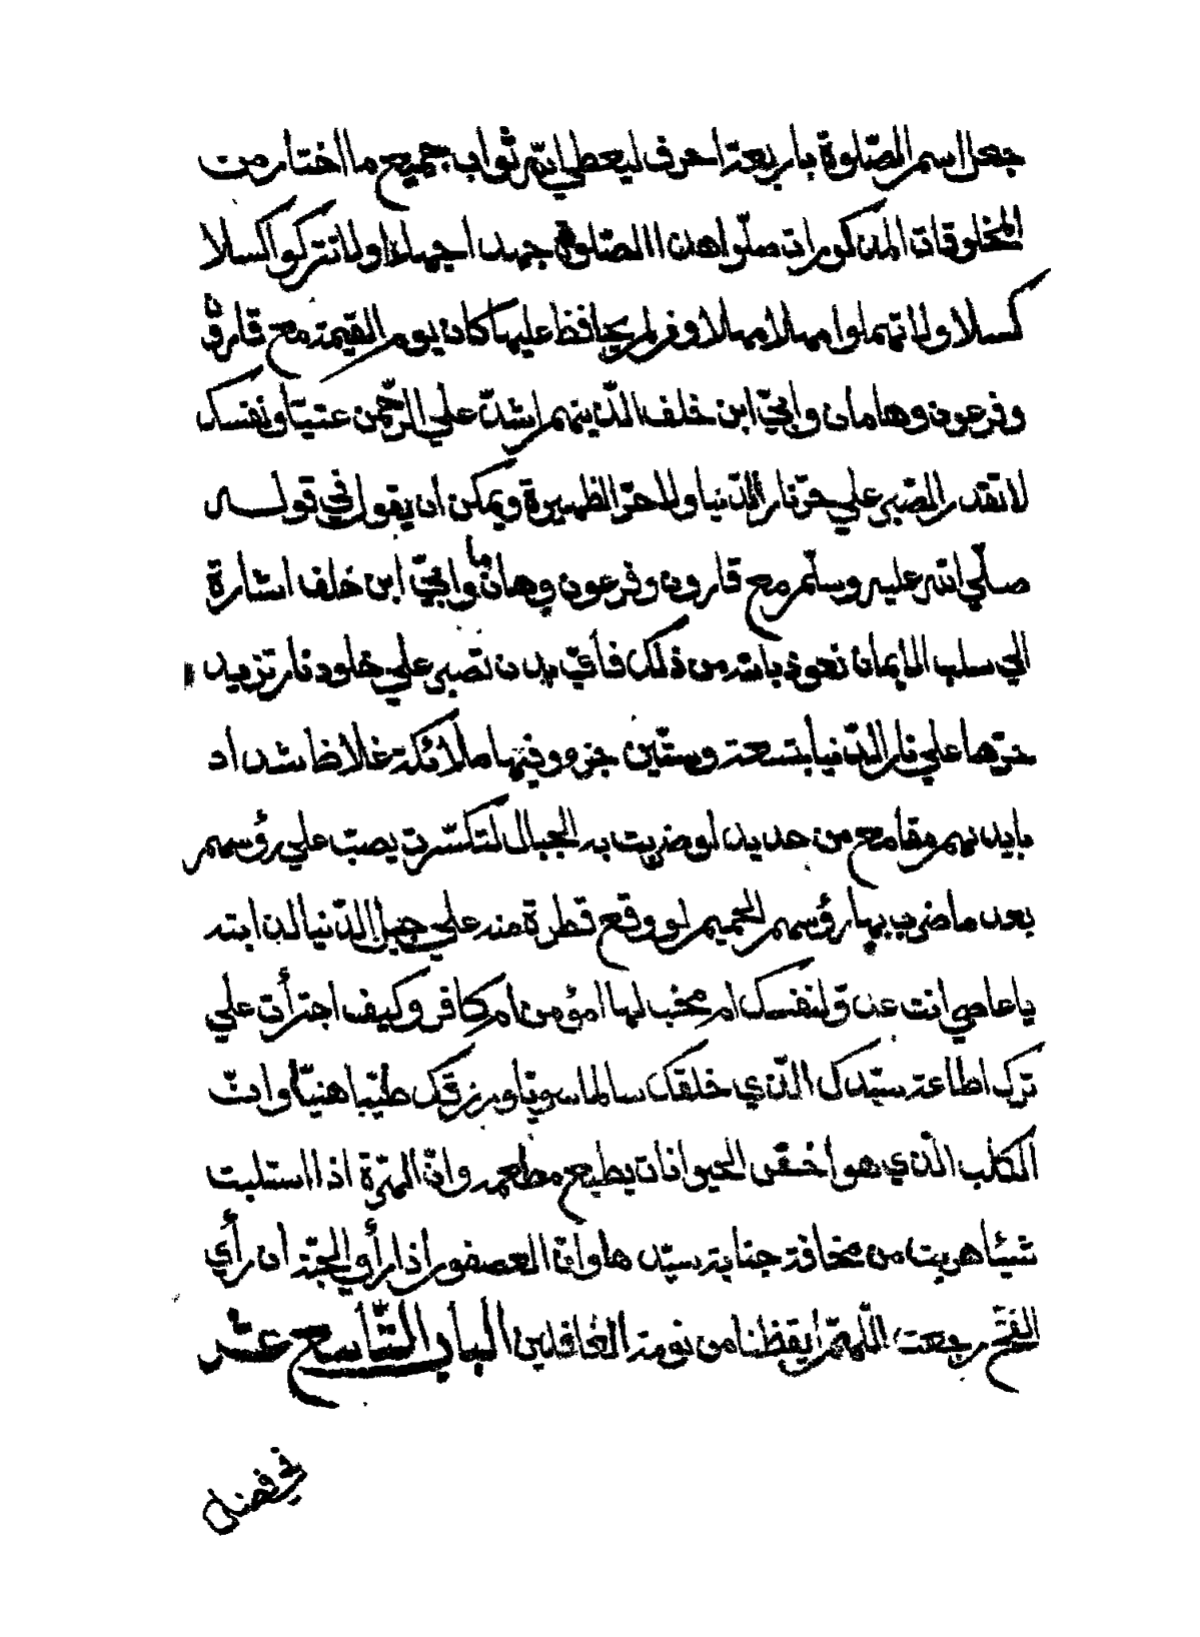 جعل اسم الصّلوة باربعة احرف ليعطي الله ثواب جميع ما اختار من
المخلوقات المذكورات صلّوا هذا الصّلوة جهدا جهدا ولا تتركوا كسلا
كسلا ولا تهملوا مهلا مهلا وفر لم يحافظ عليها كان يوم القيمة مع قارون
وفرعون وهامان وابيّ ابن خلف الذّينهم اشدّ علي الرّحمن عتيّا ونفسك
لا تقدر الصّبر علي حرّ نار الدّنيا ولا حرّ الظهيرة ويمكن ان يقول في قوله
صلّي الله عليه وسلّم مع قارون وفرعون وهامان وابيّ ابن خلف اشارة
الي سلب الايمان نعوذ بالله من ذلك فأيّ بدن تصبر علي خلود نار تزيد
حرّها علي نار الدّنيا بتسعة وستّين جزو وفيها ملائكة غلاظ شداد
بايديهم مقامع من حديد لو ضربت به الجبال لتكسّرت يصبّ علي رؤسهم
بعد ما ضرب بها رؤسهم الحميم لو وقع قطرة منه علي جبل الدّنيا لذابته
يا عاصي انت عدوّ لنفسك ام محبّ لها امؤمن ام كافر وكيف اجترأت علي
ترك اطاعة سيّدك الّذي خلقك سالما سويّا ورزقك طيّبا هنيّا وانّ
الكلب الّذي هو أخسّ الحيوانات يطيع مطعمه وانّ الهرّة اذا استلبت
شيئا هربت من مخافة جناية سيّدها وانّ العصفور اذا رأي الحبّة ان رأي
الفخّ رجعت اللّهمّ ايقظنا من نومة الغافلين الباب التّاسع عشر
في فضل